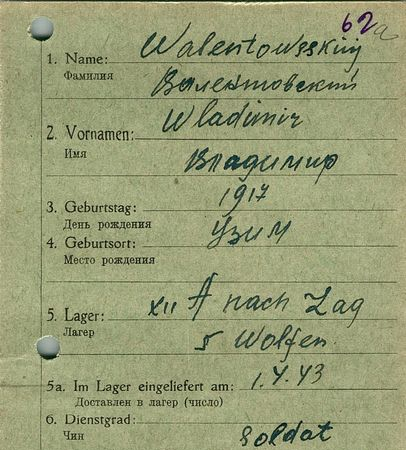 62a
1. Name: Walentowsskij
Фамилия Валентовский
2. Vornamen: Wladimir
Имя Владимир
3. Geburtstag: 1917
День рождения
4. Geburtsort: Узим
Место рождения
5. Lager: XII A nach Lag
Лагер 5 Wolfen
5a. Im Lager eingeliefert am: 1.4.43
Доставлен в лагер (число)
6. Dienstgrad: Soldat
Чин